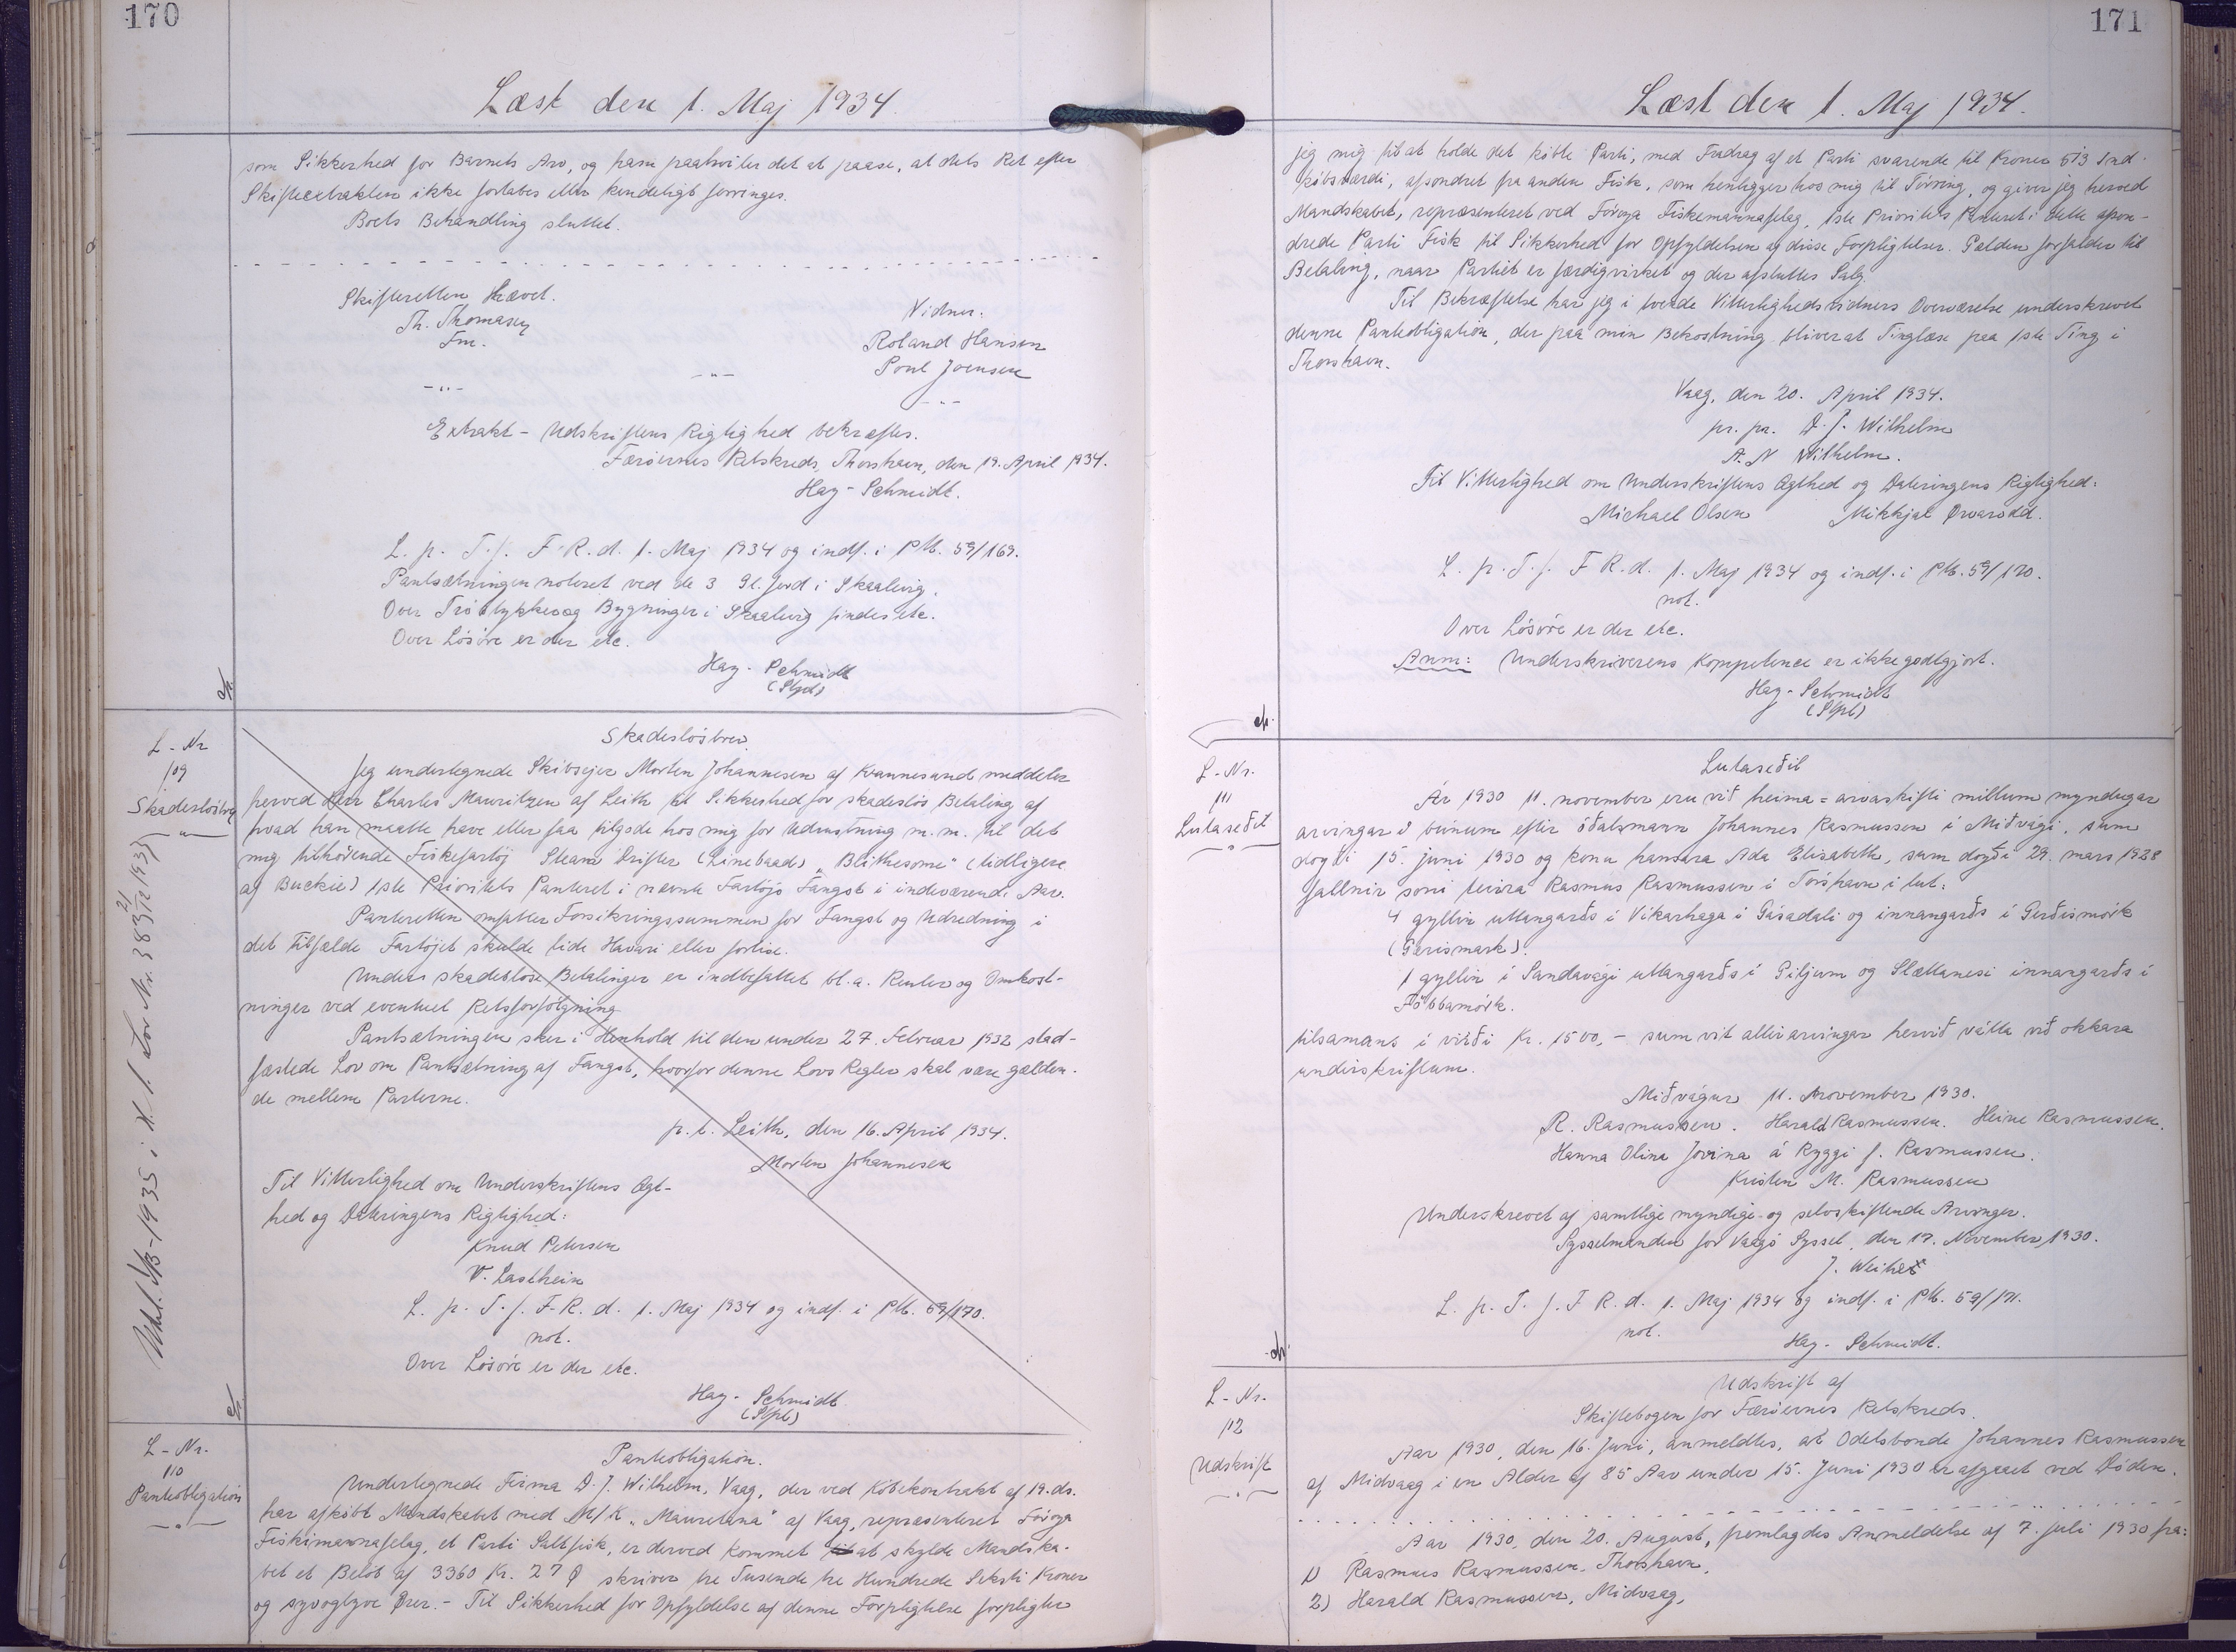 170
Læst den 1. Maj 1934.
som Sikkerhed for Barnets Arv, og ham paahviler det at paase, at dets Ret efter
Skifteextrakten ikke fortabes eller kendeligt forringes.
Boets Behandling sluttet.
Skifteretten Hævet.
Th. Thomasen
Fm.
Vidner:
Roland Hansen
Poul Joensen
-"-
-"-
-"-
Extrakt-Udskriftens Rigtighed bekræftes.
Færøernes Retskreds, Thorshavn, den 19. April 1934.
Hay-Schmidt.
L. p. T. f. F. R. d. 1. Maj 1934 og indf. i PM. 59/169.
Pantsætningen noteret ved de 3 Gl. Jord i Skaalevig.
Over Tróstykke og Bygninger i Skaalevig findes etc.
Over Løsøre er der etc.
Hay-Schmidt
L-Nr
109
Skadesløsbrev
Udsl. 1/3-1935 i
Skadesløsbrev
Jeg undertegnede Skibsejer Morten Johannesen af Kvannesund meddeler
herved Herr Charles Mauritzen af Leith til Sikkerhed for skadesløs Betaling af
hvad han maatte have eller faa tilgode hos mig for Udrustning m.m. til det
mig tilhørende Fiskefartøj Steam Drifter (Linebaad) "Blithesome" (tidligere
af Buckie) 1ste Prioritets Panteret i nævnte Fartøjs Fangst i indeværende Aar.
Panteretten omfatter Forsikringssummen for Fangst og Udredning i
det Tilfælde Fartøjet skulde lide Havari eller forlise.
Under skadesløse Betalinger er indbefattet bl.a. Renter og Omkost-
ninger ved eventuel Retsforfølgning
Pantsætningen sker i Henhold til den under 27. Februar 1932 stad-
fæstede Lov om Pantsætning af Fangst, hvorfor denne Lovs Regler skal være gælden-
de mellem Parterne.
p.t. Leith, den 16. April 1934.
Morten Johannesen
Til Vitterlighed om Underskriftens Ægt-
hed og Dateringens Rigtighed:
Knud Petersen
V. Lasthein
L. p. T. f. F. R. d. 1. Maj 1934 og indf. i PM. 59/170.
not.
Over Løsøre er der etc.
Hay-Schmidt
L-Nr.
110
Pantobligation
Pantobligation.
Undertegnede Firma D. J. Wilhelm, Vaag, der ved Købekontrakt af 19. ds.
har afkøbt Mandskabet med M/K "Mauretana" af Vaag, repræsenteret Föroya
Fiskimannafelag, et Parti Saltfisk, er derved kommet til at skylde Mandska-
bet et Beløb af 3360 Kr. 27 Ø skriver tre Tusende tre Hundrede Seksti Kroner
og syvogtyve Ører.- Til Sikkerhed for Opfyldelse af denne Forpligtelse forpligter
171
Læst den 1. Maj 1934.
jeg mig til at holde det købte Parti, med Fradrag af et Parti svarende til Kroner 573 Ind-
købsværdi, afsondret fra anden Fisk, som henligger hos mig til Tørring, og giver jeg herved
Mandskabet, repræsenteret ved Föroya Fiskemannafelag, 1ste Prioritets Panteret i dette afson-
drede Parti Fisk til Sikkerhed for Opfyldelsen af disse Forpligtelser. Gælden forfalder til
Betaling, naar Partiet er færdigvirket og der afsluttes Salg.
Til Bekræftelse har jeg i tvende Vitterlighedsvidners Overværelse underskrevet
denne Pantobligation, der paa min Bekostning bliver at Tinglæse paa 1ste Ting i
Thorshavn.
Vaag, den 20. April 1934.
pr. pr. D. J. Wilhelm
A. N Wilhelm.
Til Vitterlighed om Underskriftens Ægthed og Dateringens Rigtighed:
Michael Olsen Mikkjal
L. p. T. f. F R. d. 1. Maj 1934 og indf. i PM. 59/170.
not.
Over Løsøre er der etc.
Anm: Underskriverens Kompetence er ikke godtgjort.
Hay-Schmidt
L-Nr.
111
Lutaseðil
Lutaseðil
Ár 1930 11. november eru við heima-arvaskifti millum myndugar
arvingar í búnum eftir óðalsmann Johannes Rasmussen í Miðvági, sum
doyði 15. juni 1930 og konu hansara Ada Elisabeth, sum doyði 29. mars 1928
fallnir soni teirra Rasmus Rasmussen í Tórshavn í lut:
4 gyllin uttangarðs í Víkarhaga í Gásadali og innangarðs í Gerðismörk
(Garismark).
1 gyllin í Sandavági uttangarðs í Giljum og Slættanesi innangarðs í
Fobbamörk.
tilsamans í virði Kr. 1500,- sum vit allir arvingar hervið vátta við okkara
underskriftum.
Miðvágur 11. november 1930.
R. Rasmussen. Harald Rasmussen. Heine Rasmussen.
Hanna Olina Jovina á Ryggi f. Rasmussen.
Kristen M. Rasmussen
Underskrevet af samtlige myndige og selvskiftende Arvinger.
Sysselmanden for Vaagø Syssel, den 17. November 1930.
J. Weihe
L. p. T. f. F R. d. 1. Maj 1934 og indf. i PM. 59/171.
not.
Hay-Schmidt.
L-Nr.
112
Udskrift
Udskrift af
Skiftebogen for Færøernes Retskreds.
Aar 1930, den 16. Juni, anmeldtes, at Odelsbonde Johannes Rasmussen
af Midvaag i en Alder af 85 Aar under 15. Juni 1930 er afgaaet ved Døden.
Aar 1930, den 20. August, fremlagdes Anmeldelse af 7. Juli 1930 fra:
1) Rasmus Rasmussen, Thorshavn,
2) Harald Rasmussen, Midvaag,